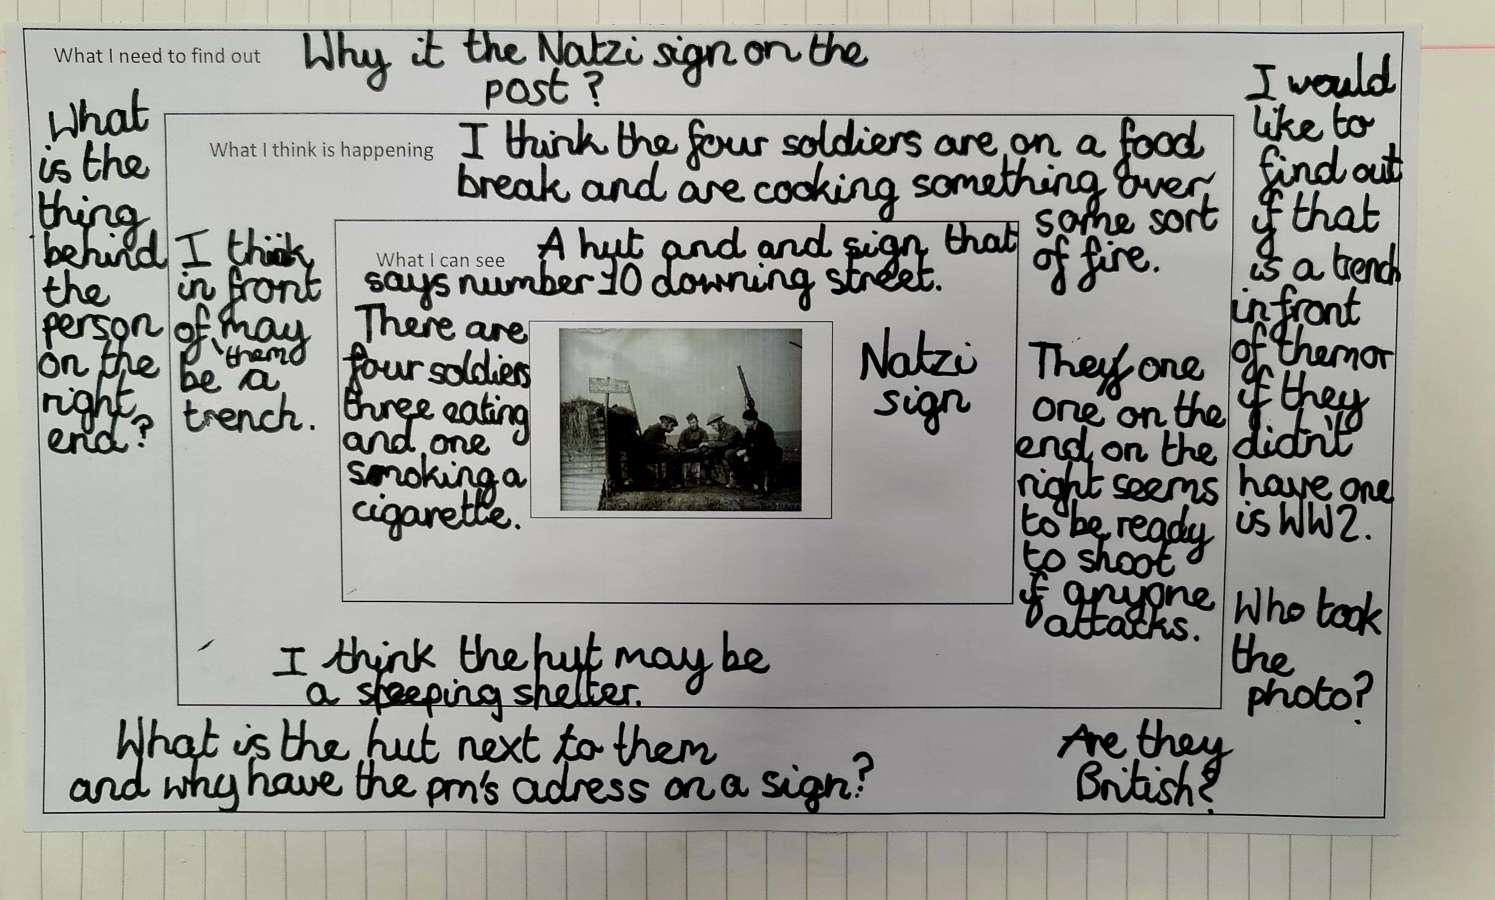 What I need to find out
Why it the Natzi sign on the
post?
What
is the
thing
behind
the
person
on the
right
end?
I would
like to
find out
if that
is a trench
in front
of them or
if they
didn't
have one
is WW2.
Who took
the
photo?
Are they
British?
What is the hut next to them
and why have the pm's adress on a sign?
What I think is happening
I think the four soldiers are on a food
break and are cooking something over
some sort
of fire.
I think
in front
of may
them
be a
trench.
They one
one on the
end, on the
right seems
to be ready
to shoot
if anyone
attacks.
I think the hut may be
a sleeping shelter.
What I can see
A hut and and sign that
says number 10 downing street.
There are
four soldiers
three eating
and one
smoking a
cigarette.
Natzi
sign